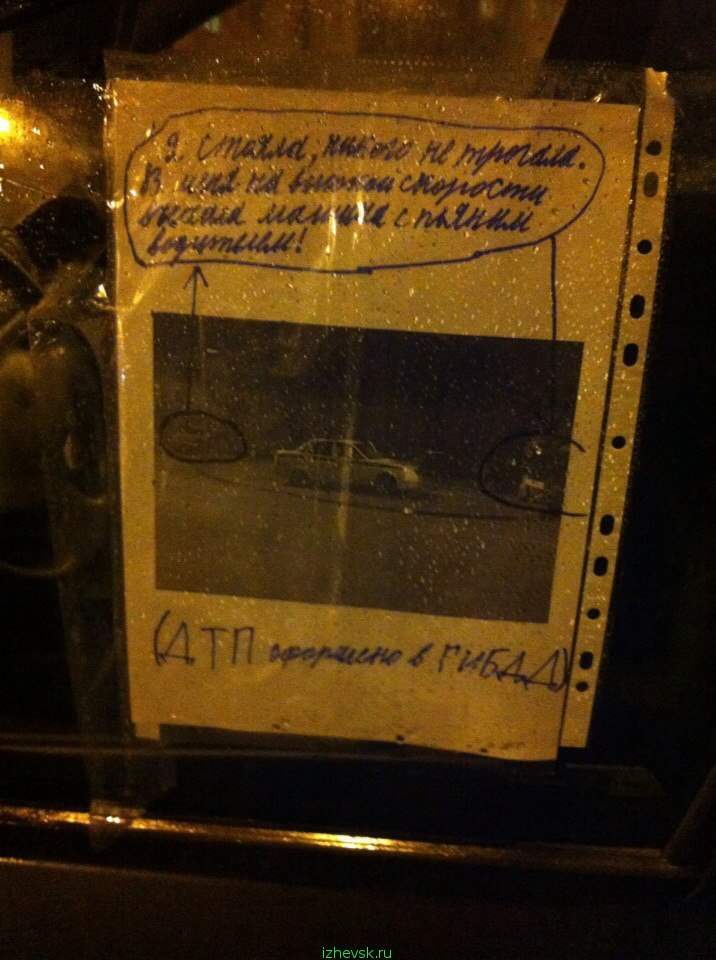 Я стояла, никого не трогала.
В меня на высокой скорости
въехала машина с пьяным
водителем!
(ДТП оформлено в ГИБДД)
izhevsk.ru